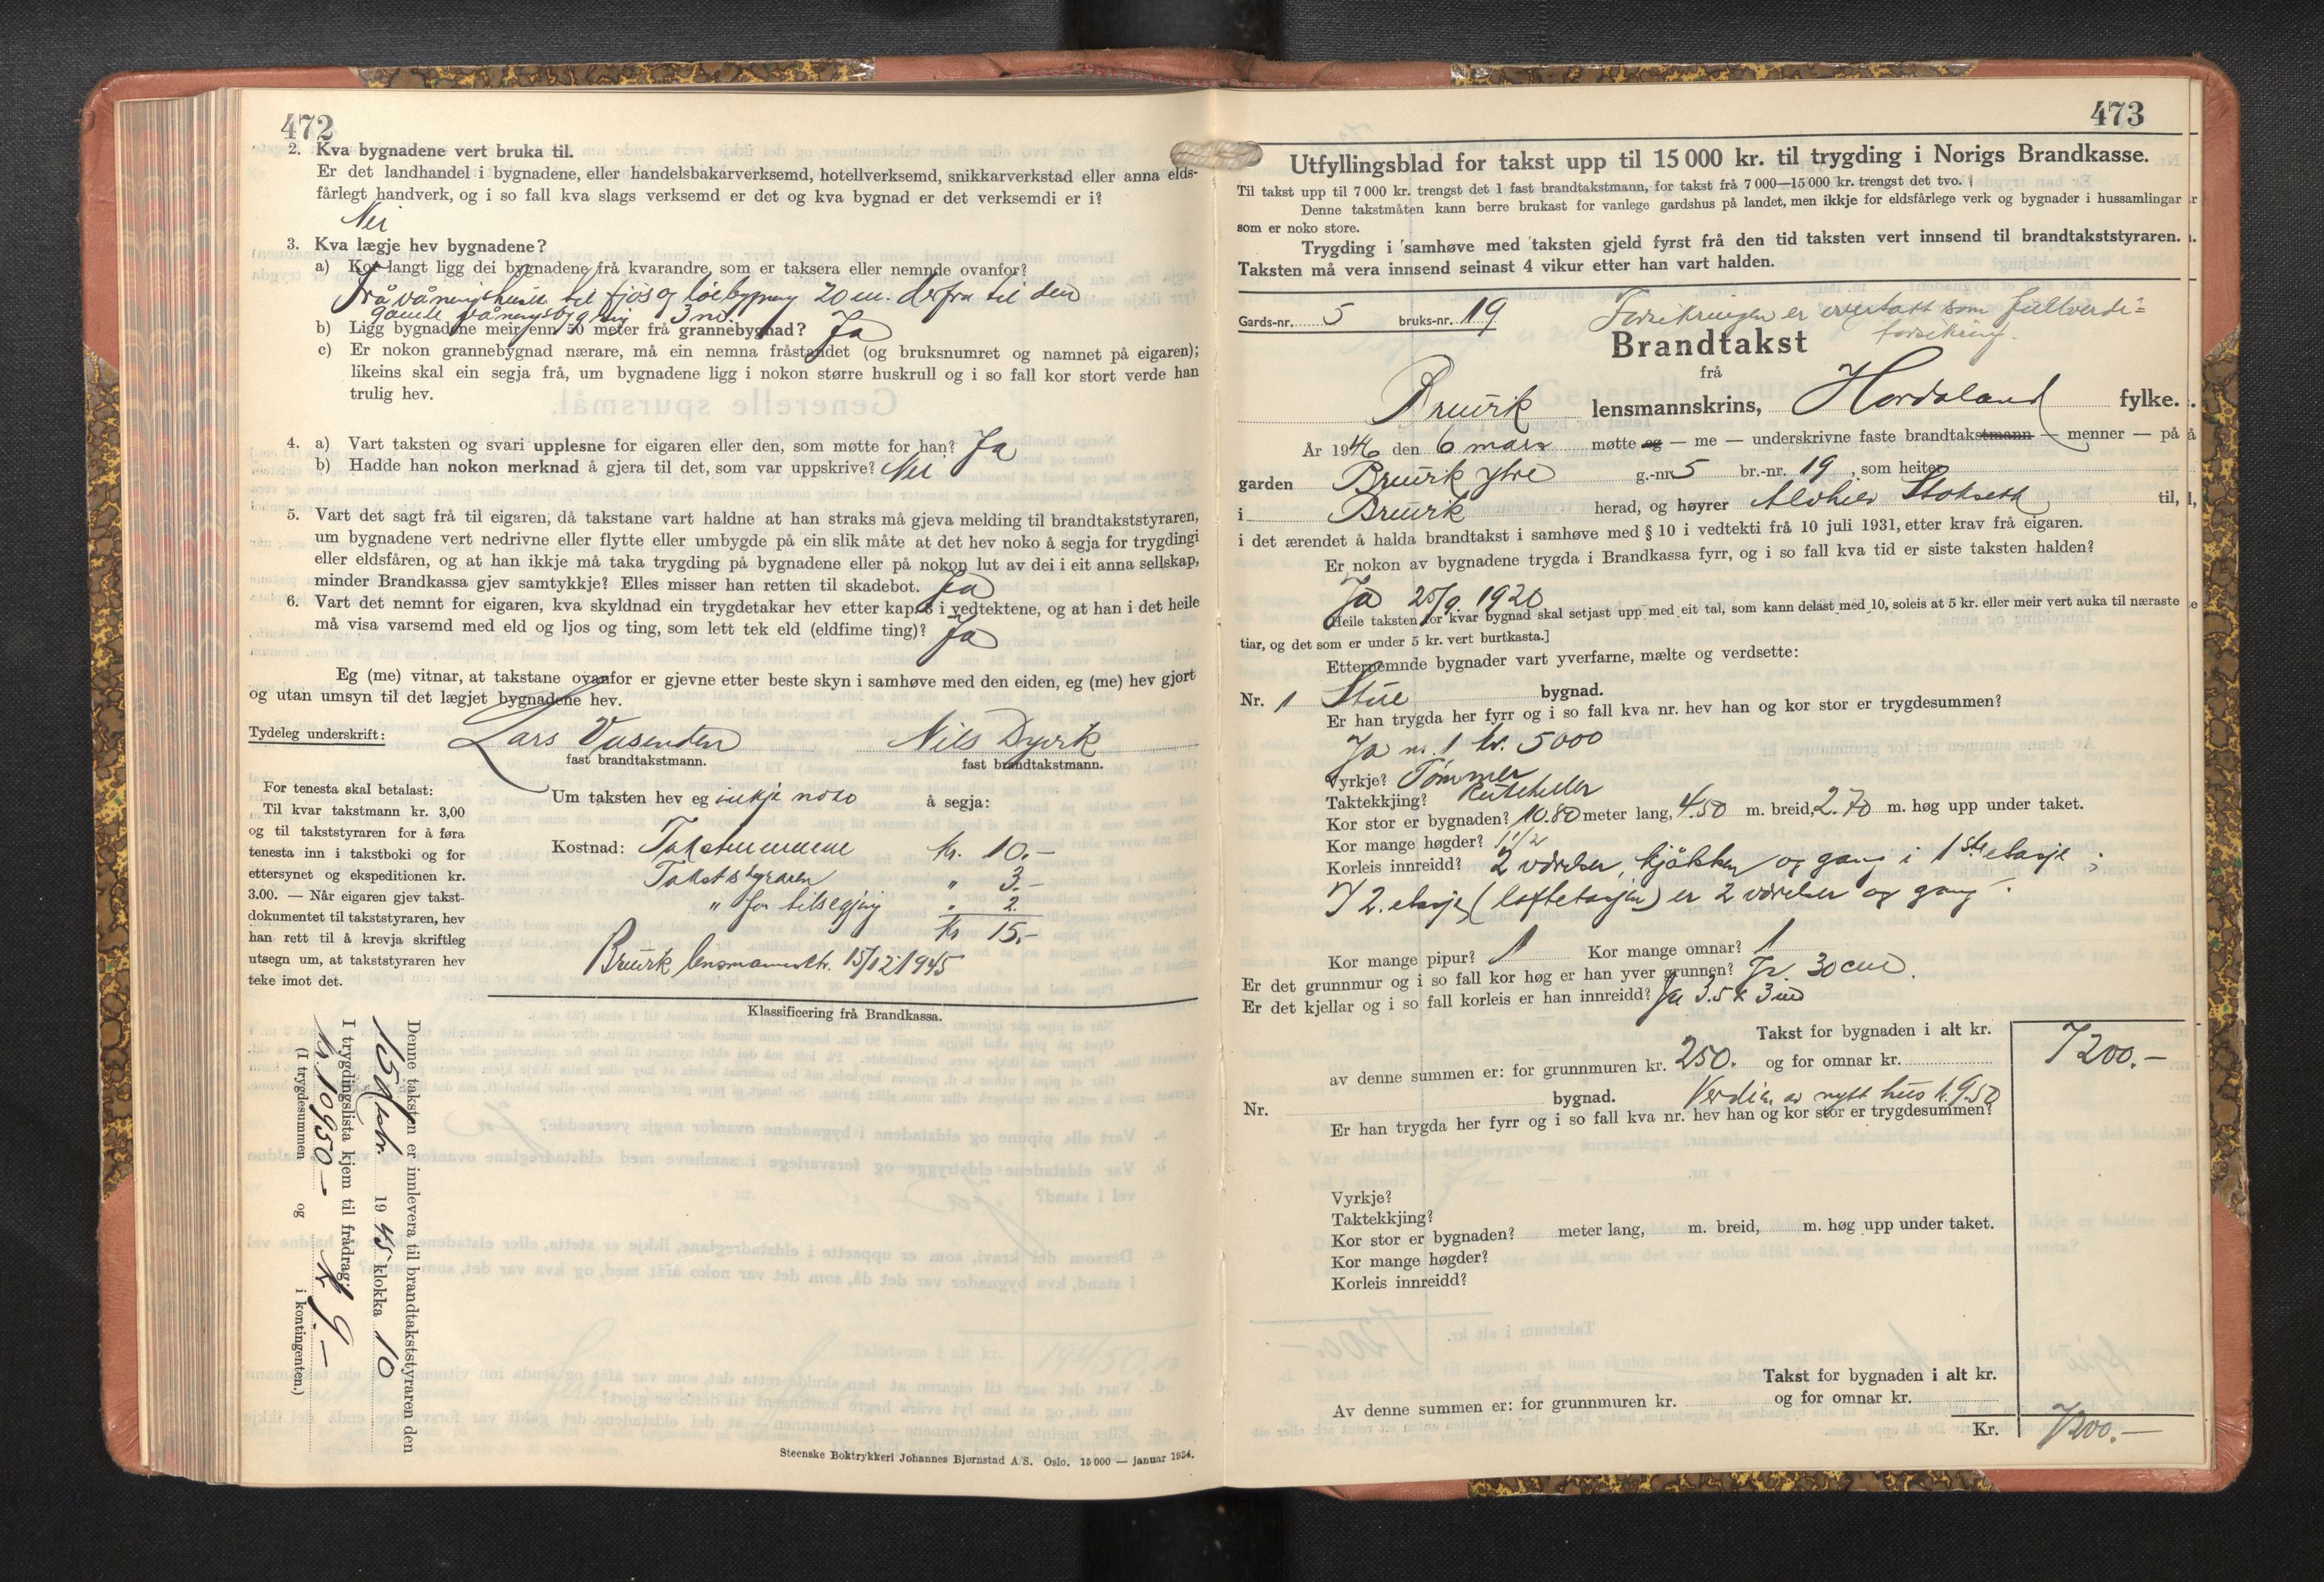 472
2. Kva bygnadene vert bruka til.
Er det landhandel i bygnadene, eller handelsbakarverksemd, hotellverksemd, snikkarverkstad eller anna elds-
fårlegt handverk, og i so fall kva slags verksemd er det og kva bygnad er det verksemdi er i?
Nei
3. Kva lægje hev bygnadene?
a) Kor langt ligg dei bygnadene frå kvarandre, som er taksera eller nemnde ovanfor?
Frå våningshuset til fjøs og löebygning 20 m. derfra til den
gamle våningsbygning 3 m.
b) Ligg bygnadene meir enn 50 meter frå grannebygnad? Ja
c) Er nokon grannebygnad nærare, må ein nemna fråstandet (og bruksnumret og namnet på eigaren);
likeins skal ein segja frå, um bygnadene ligg i nokon større huskrull og i so fall kor stort verde han
trulig hev.
4. a) Vart taksten og svari upplesne for eigaren eller den, som møtte for han? Ja
b) Hadde han nokon merknad å gjera til det, som var uppskrive? Nei
5. Vart det sagt frå til eigaren, då takstane vart haldne at han straks må gjeva melding til brandtakststyraren,
um bygnadene vert nedrivne eller flytte eller umbygde på ein slik måte at det hev noko å segja for trygdingi
eller eldsfåren, og at han ikkje må taka trygding på bygnadene eller på nokon lut av dei i eit anna sellskap,
minder Brandkassa gjev samtykkje? Elles misser han retten til skadebot. Ja
6. Vart det nemnt for eigaren, kva skyldnad ein trygdetakar hev etter kap. 8 i vedtektene, og at han i det heile
må visa varsemd med eld og ljos og ting, som lett tek eld (eldfime ting)? Ja
Eg (me) vitnar, at takstane ovanfor er gjevne etter beste skyn i samhøve med den eiden, eg (me) hev gjort
og utan umsyn til det lægjet bygnadene hev.
Tydeleg underskrift: Lars Vasenden Nils Dyvik
fast brandtakstmann. fast brandtakstmann.
For tenesta skal betalast:
Til kvar takstmann kr. 3,00
og til takststyraren for å føra
tenesta inn i takstboki og for
ettersynet og ekspeditionen kr.
3.00. — Når eigaren gjev takst-
dokumentet til takststyraren, hev
han rett til å krevja skriftleg
utsegn um, at takststyraren hev
teke imot det.
Um taksten hev eg inkje noko å segja:
Kostnad: Takstmennene kr. 10.-
Takststyraren " 3.-
" for tilsegjing " 2.
kr 15.-
Bruvik lensmannsktr. 15/12 1945
Klassificering frå Brandkassa.
Denne taksten er innlevera til brandtakststyraren den
15 19 45 klokka 10
I trygdingslista kjem til frådrag:
kr. 10950.- og kr 9.-
(I trygdesummen i kontingenten.)
Steenske Boktrykkeri Johannes Bjørnstad A/S. Oslo. 15 000 — januar 1934.
473
Utfyllingsblad for takst upp til 15 000 kr. til trygding i Norigs Brandkasse.
Til takst upp til 7 000 kr. trengst det 1 fast brandtakstmann, for takst frå 7 000—15 000 kr. trengst det tvo.
Denne takstmåten kann berre brukast for vanlege gardshus på landet, men ikkje for eldsfårlege verk og bygnader i hussamlingar
som er noko store.
Trygding i samhøve med taksten gjeld fyrst frå den tid taksten vert innsend til brandtakststyraren.
Taksten må vera innsend seinast 4 vikur etter han vart halden.
Gards-nr. 5 bruks-nr. 19 Forsikringen er overtatt som fullverdi=
forsikring.
Brandtakst
frå
Bruvik lensmannskrins, Hordaland fylke.
År 1946 den 6 mars møtte eg — me — underskrivne faste brandtakstmann — menner — på
garden Bruvik ytre g.-nr. 5 br.-nr. 19, som heiter
i Bruvik herad, og høyrer Alvhild Stokseth til,
i det ærendet å halda brandtakst i samhøve med § 10 i vedtekti frå 10 juli 1931, etter krav frå eigaren.
Er nokon av bygnadene trygda i Brandkassa fyrr, og i so fall kva tid er siste taksten halden?
Ja 25/9 1920
[Heile taksten for kvar bygnad skal setjast upp med eit tal, som kann delast med 10, soleis at 5 kr. eller meir vert auka til næraste
tiar, og det som er under 5 kr. vert burtkasta.]
Etternemnde bygnader vart yverfarne, mælte og verdsette:
Nr. 1 Stue bygnad.
Er han trygda her fyrr og i so fall kva nr. hev han og kor stor er trygdesummen?
Ja nr. 1 kr. 5000
Vyrkje? Tømmer
Taktekkjing? Ruteheller
Kor stor er bygnaden? 10.80 meter lang, 4.50 m. breid, 2.70 m. høg upp under taket.
Kor mange høgder? 1 1/2
Korleis innreidd? 2 værelser, kjøkken og gang i 1ste etasje;
I 2. etasje (loftetasjen) er 2 værelser og gang.
Kor mange pipur? 1 Kor mange omnar? 1
Er det grunnmur og i so fall kor høg er han yver grunnen? Ja 30 cm.
Er det kjellar og i so fall korleis er han innreidd? Ja 3.5 x 3 m
Takst for bygnaden i alt kr. 7200.-
av denne summen er: for grunnmuren kr. 250. og for omnar kr.
Nr. bygnad. Verdien av nytt hus kr. 9.50
Er han trygda her fyrr og i so fall kva nr. hev han og kor stor er trygdesummen?
Vyrkje?
Taktekkjing?
Kor stor er bygnaden? meter lang, m. breid, m. høg upp under taket.
Kor mange høgder?
Korleis innreidd?
Takst for bygnaden i alt kr.
Av denne summen er: for grunnmuren kr. og for omnar kr.
Kr. 7200.-